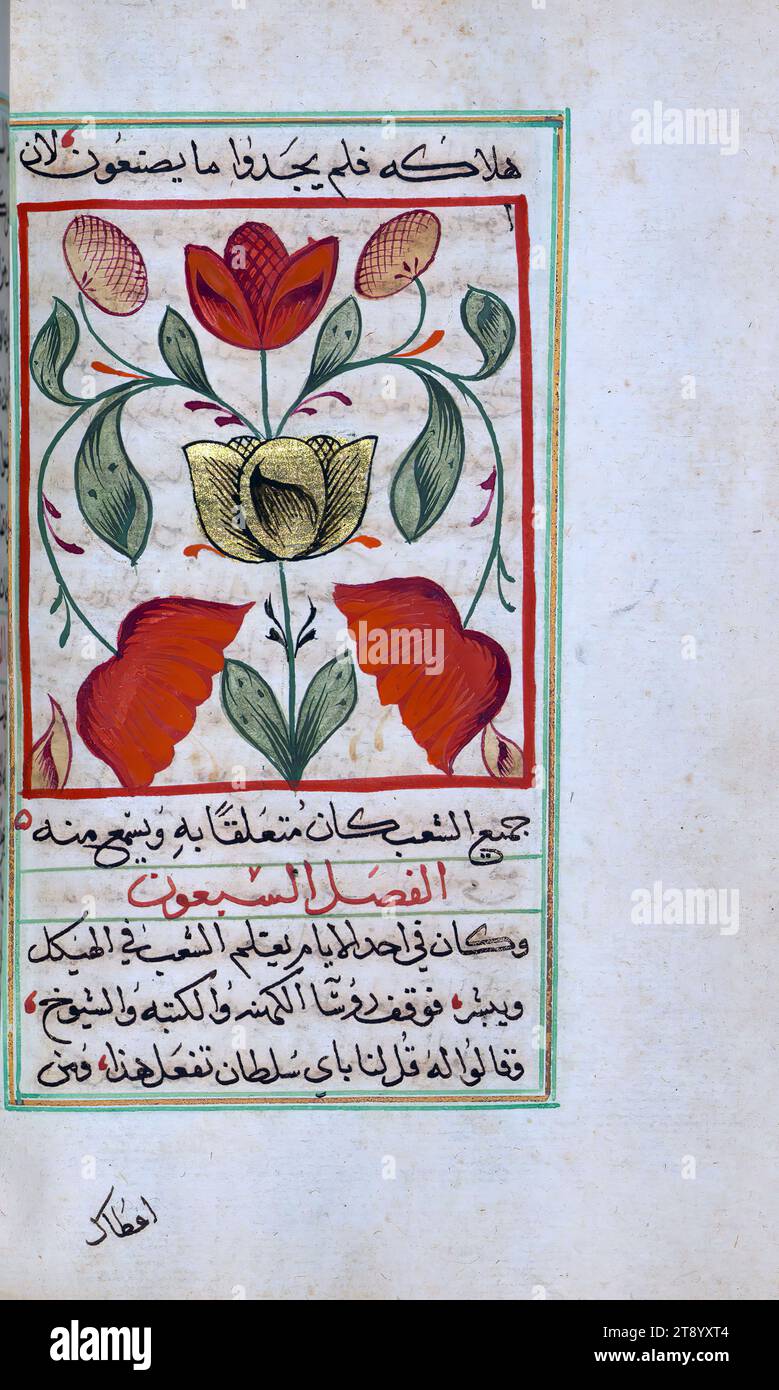 هلاكه فلم يجدوا ما يصنعون لان
جميع الشعب كان متعلقًا به ويسمع منه
الفصل السبعون
وكان في احد الايام يعلم الشعب في الهيكل
ويبشر، فوقف روسآ الكهنه والكتبه والشيوخ،
وقالوا له قُل لنا باي سلطان تفعل هذا، ومن
اعطاك
alamy
alamy
alamy
Image ID: 2T8YXT4
www.alamy.com